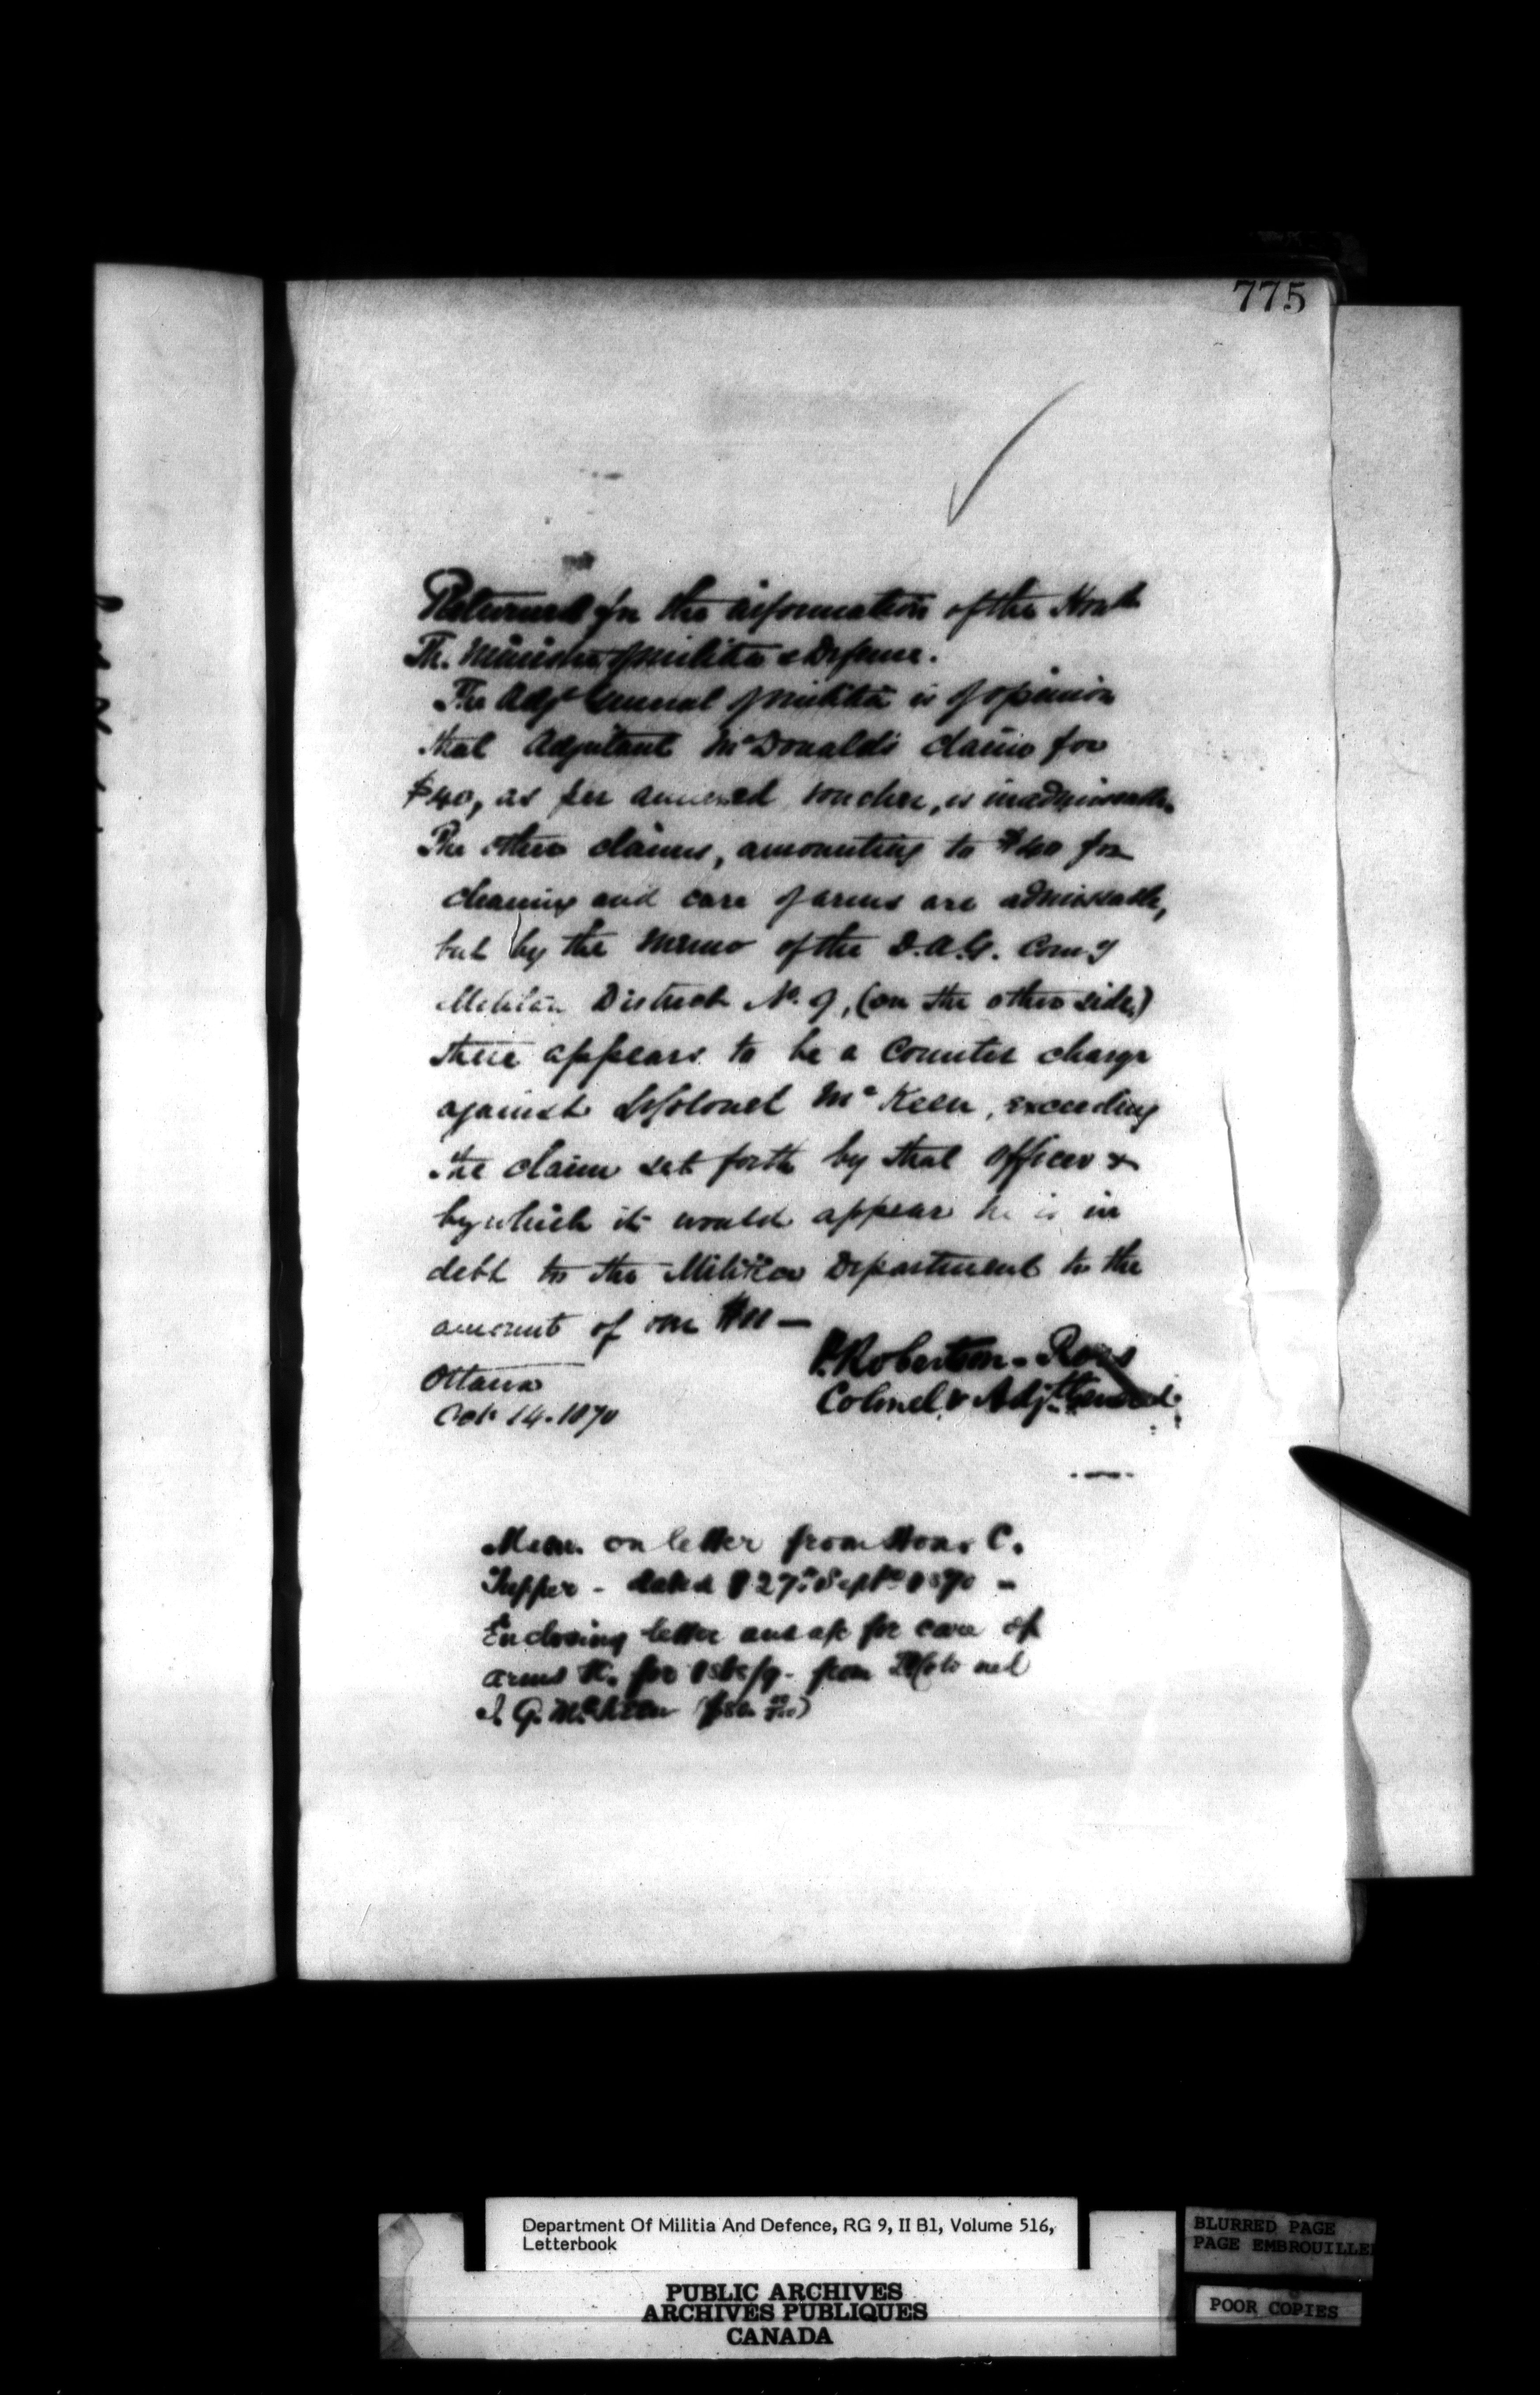 775
Returned for the information of the Honble
The Minister of Militia & Defence.
The Adjt General of Militia is of opinion
that Adjutant McDonald's claim for
$40, as per annexed voucher, is inadmissable.
The other claims, amounting to $40 for
cleaning and care of arms are admissable,
but by the memo of the D.A.G. Comg
Militia District No. 9, (on the other side)
there appears to be a counter charge
against Lt Colonel McKeen, exceeding
the claim set forth by that officer &
by which it would appear he is in
debt to the Militia Department to the
amount of
P. Robertson-Ross
Colonel & Adjt General
Ottawa
Oct 14. 1870
Mem. on letter from Hon. C.
Tupper - dated 27th Sept 1870 -
Enclosing letter and a/c for care of
arms &c. for 1868/9 - from Lt Colonel
McKeen
Department Of Militia And Defence, RG 9, II B1, Volume 516,
Letterbook
BLURRED PAGE
PAGE EMBROUILLEE
POOR COPIES
PUBLIC ARCHIVES
ARCHIVES PUBLIQUES
CANADA